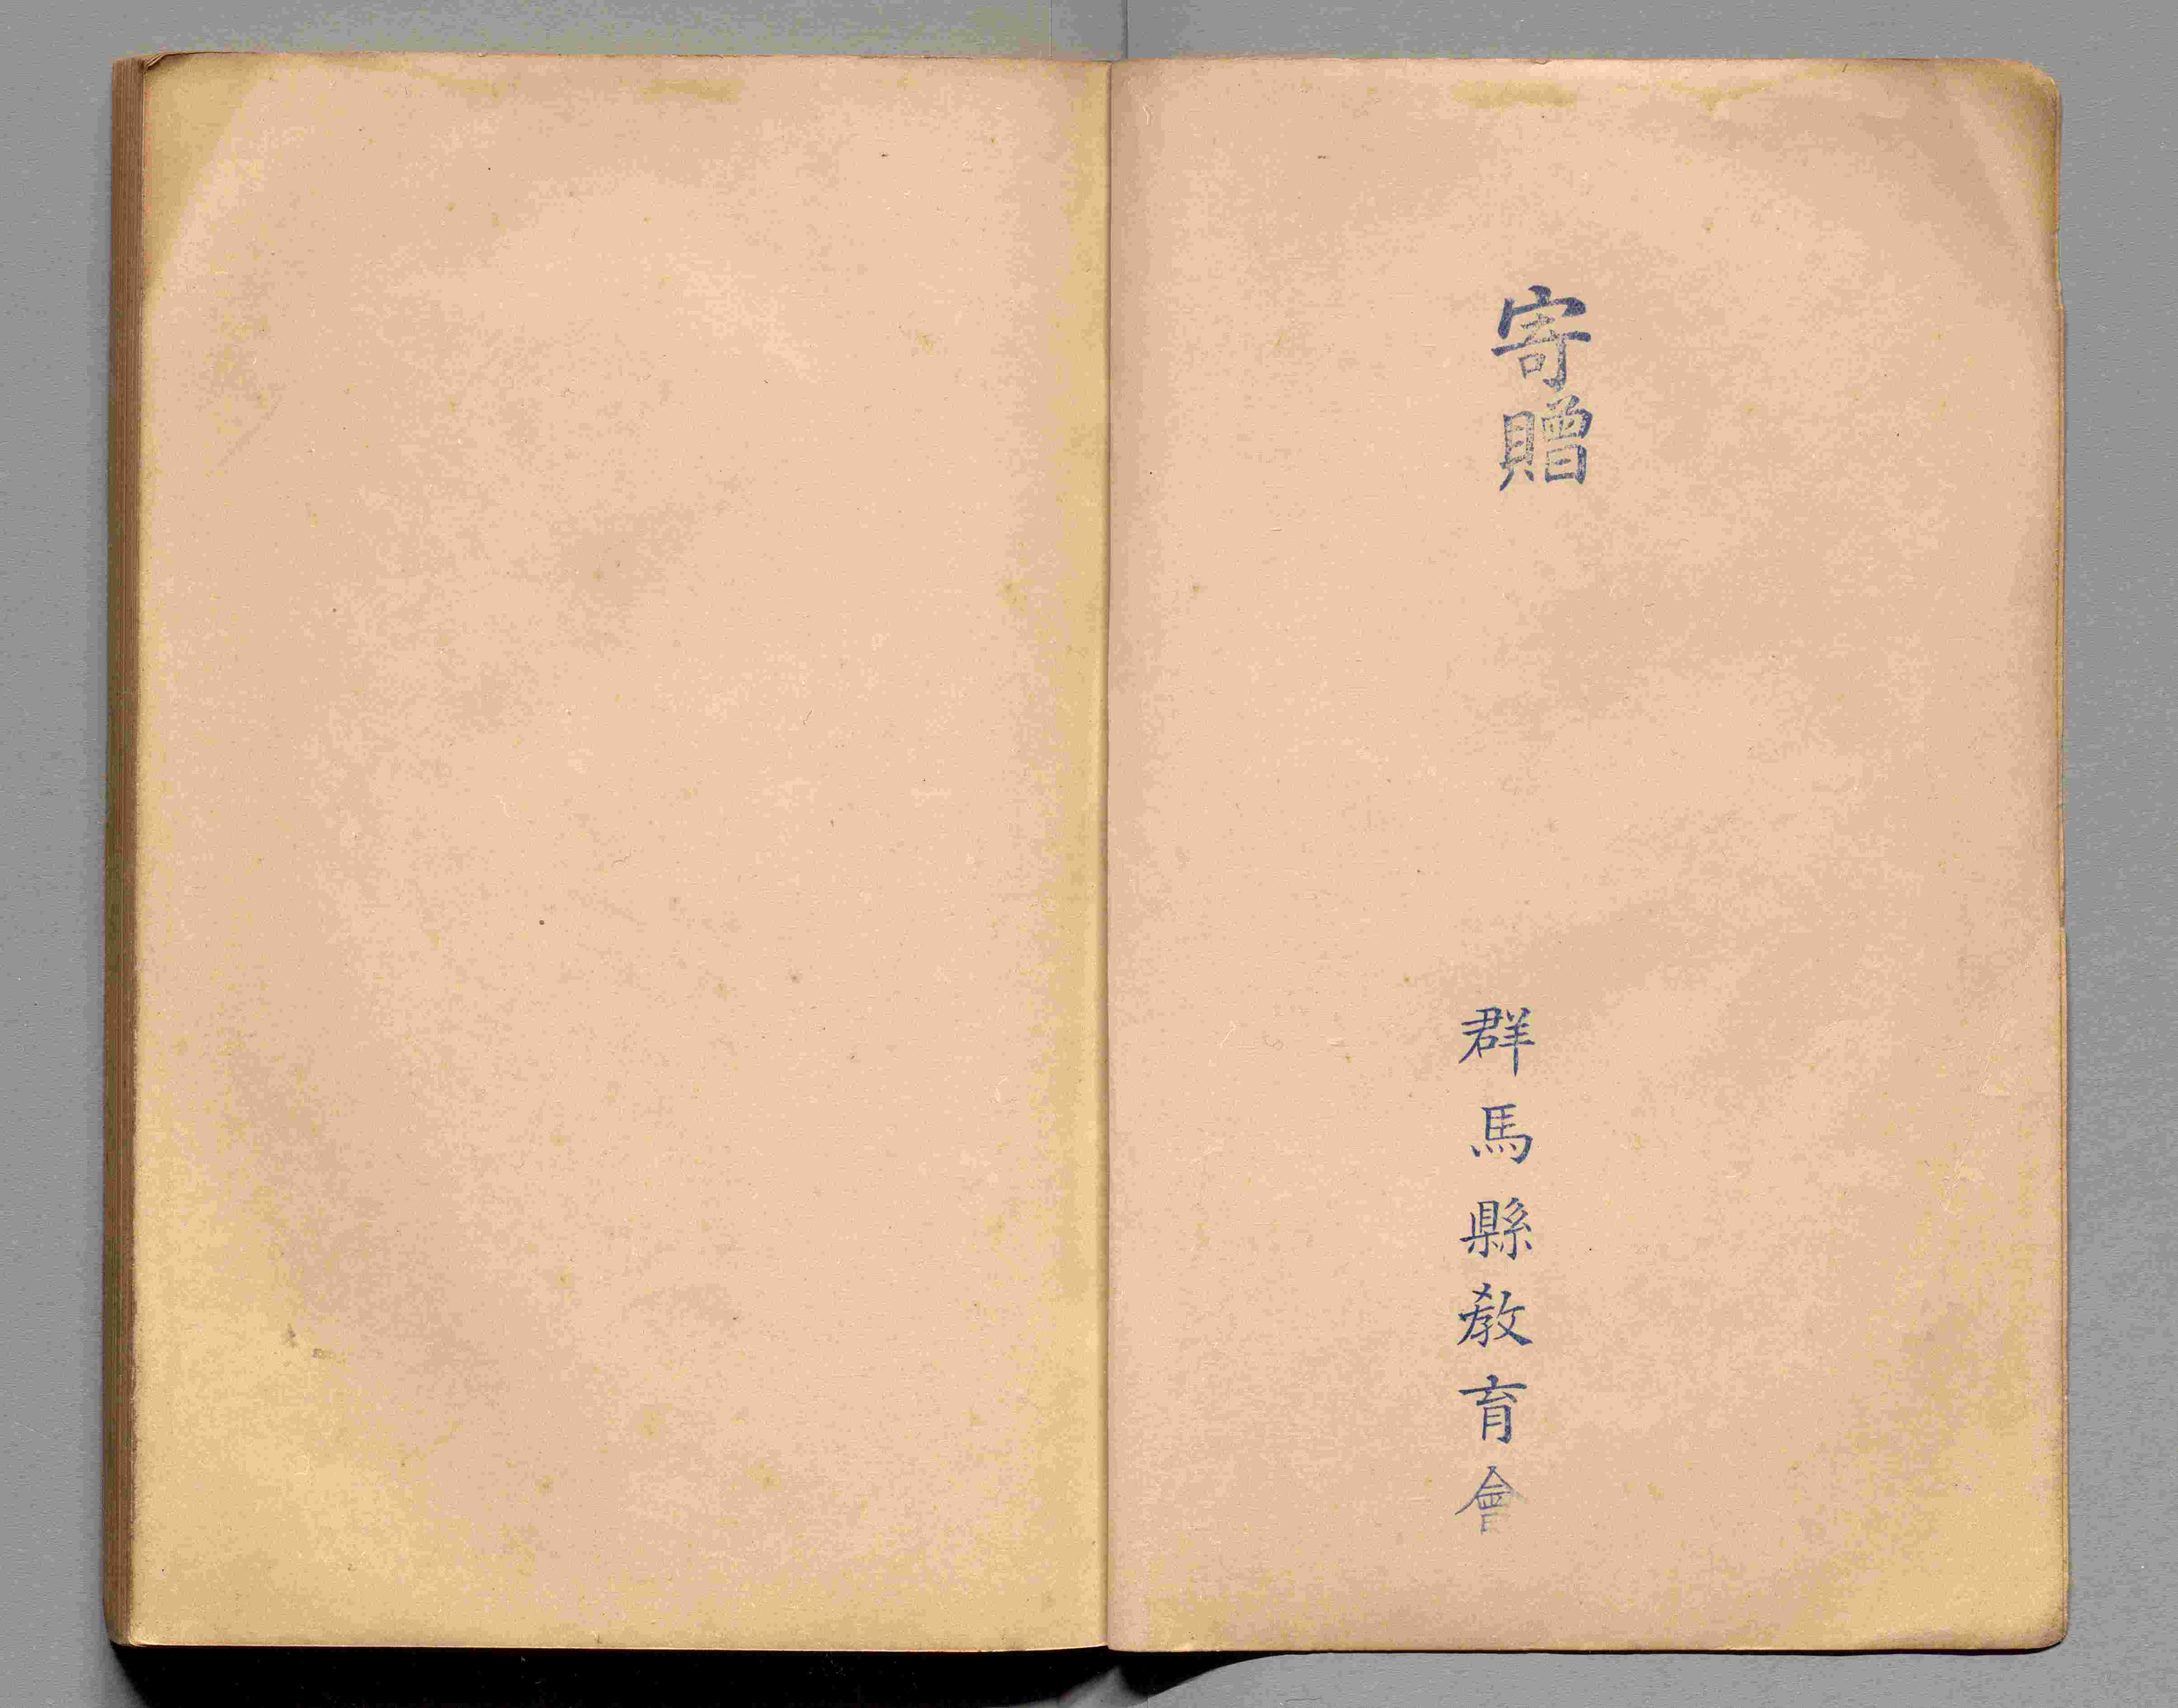 寄贈
群馬縣敎育會